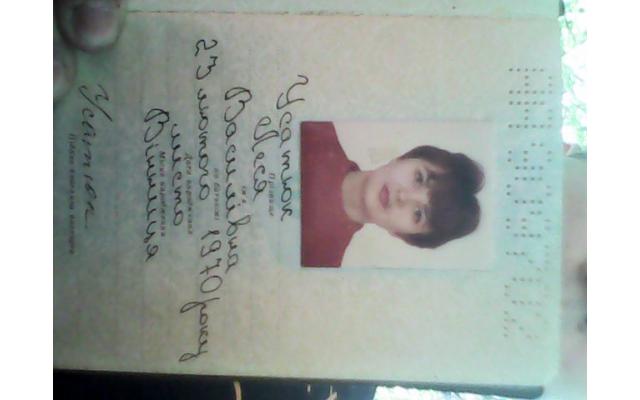 Усатюк
Прізвище
Леся
Ім'я
Василівна
По батькові
23 лютого 1970 року
Дата народження
місто
Місце народження
Вінниця
Усатюк
Підпис власника паспорта